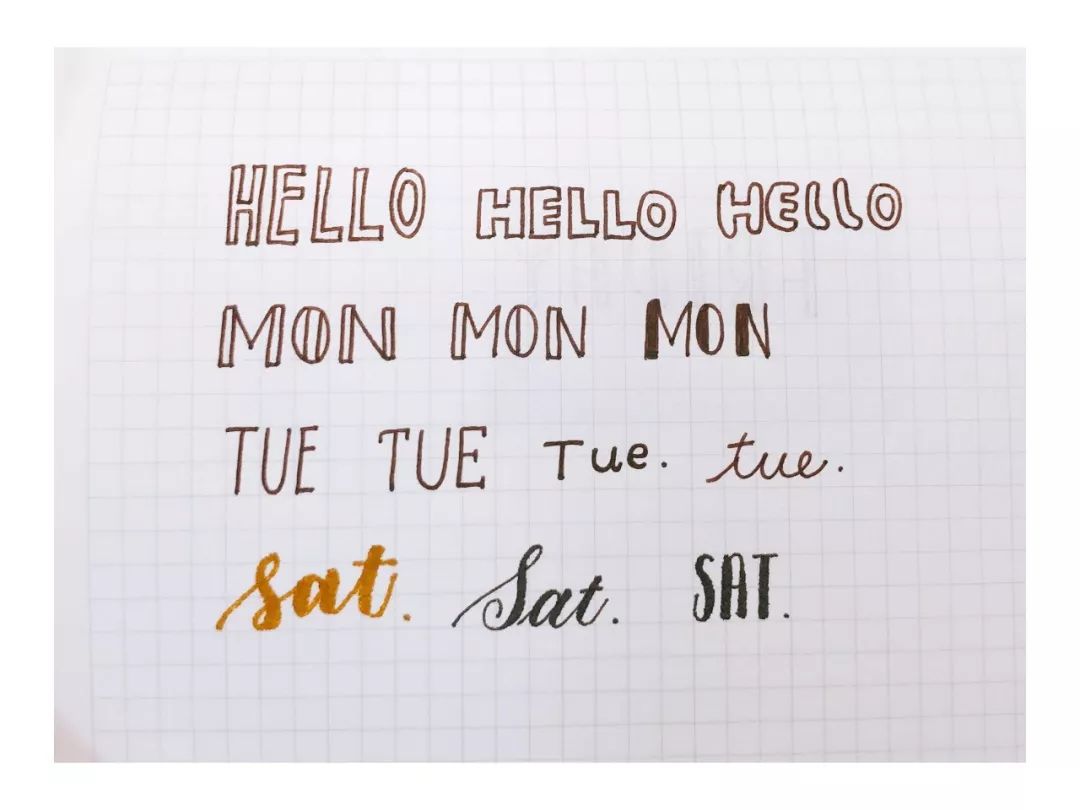 HELLO HELLO HELLO
MON MON MON
TUE TUE Tue. tue.
sat. Sat. SAT.